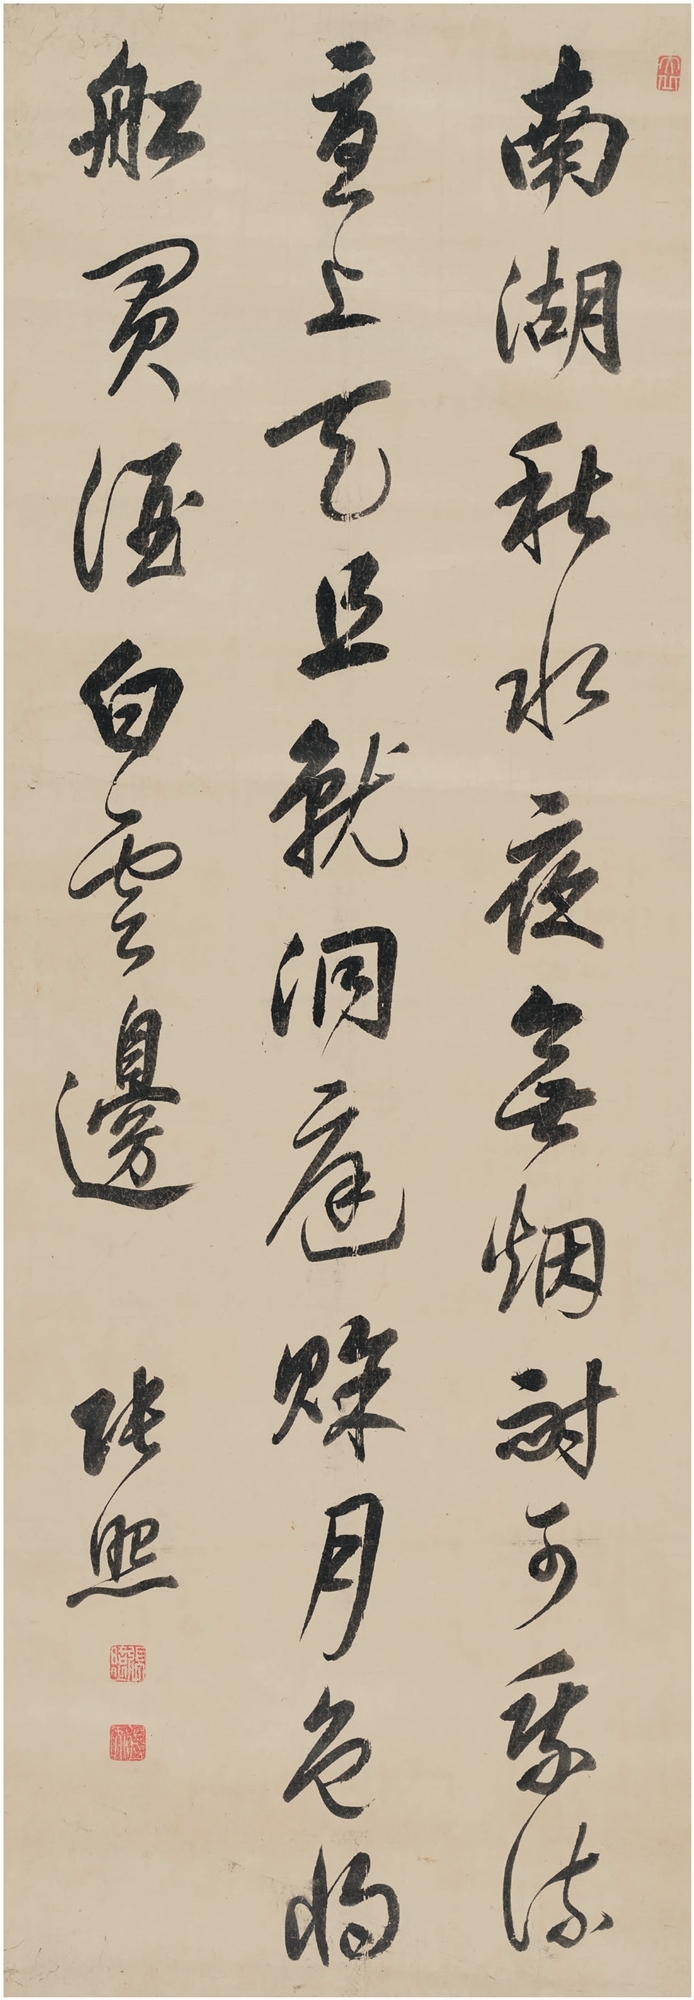 南湖秋水夜無烟耐可乘流
直上天且就洞庭賖月色將
船買酒白雲邊
張照